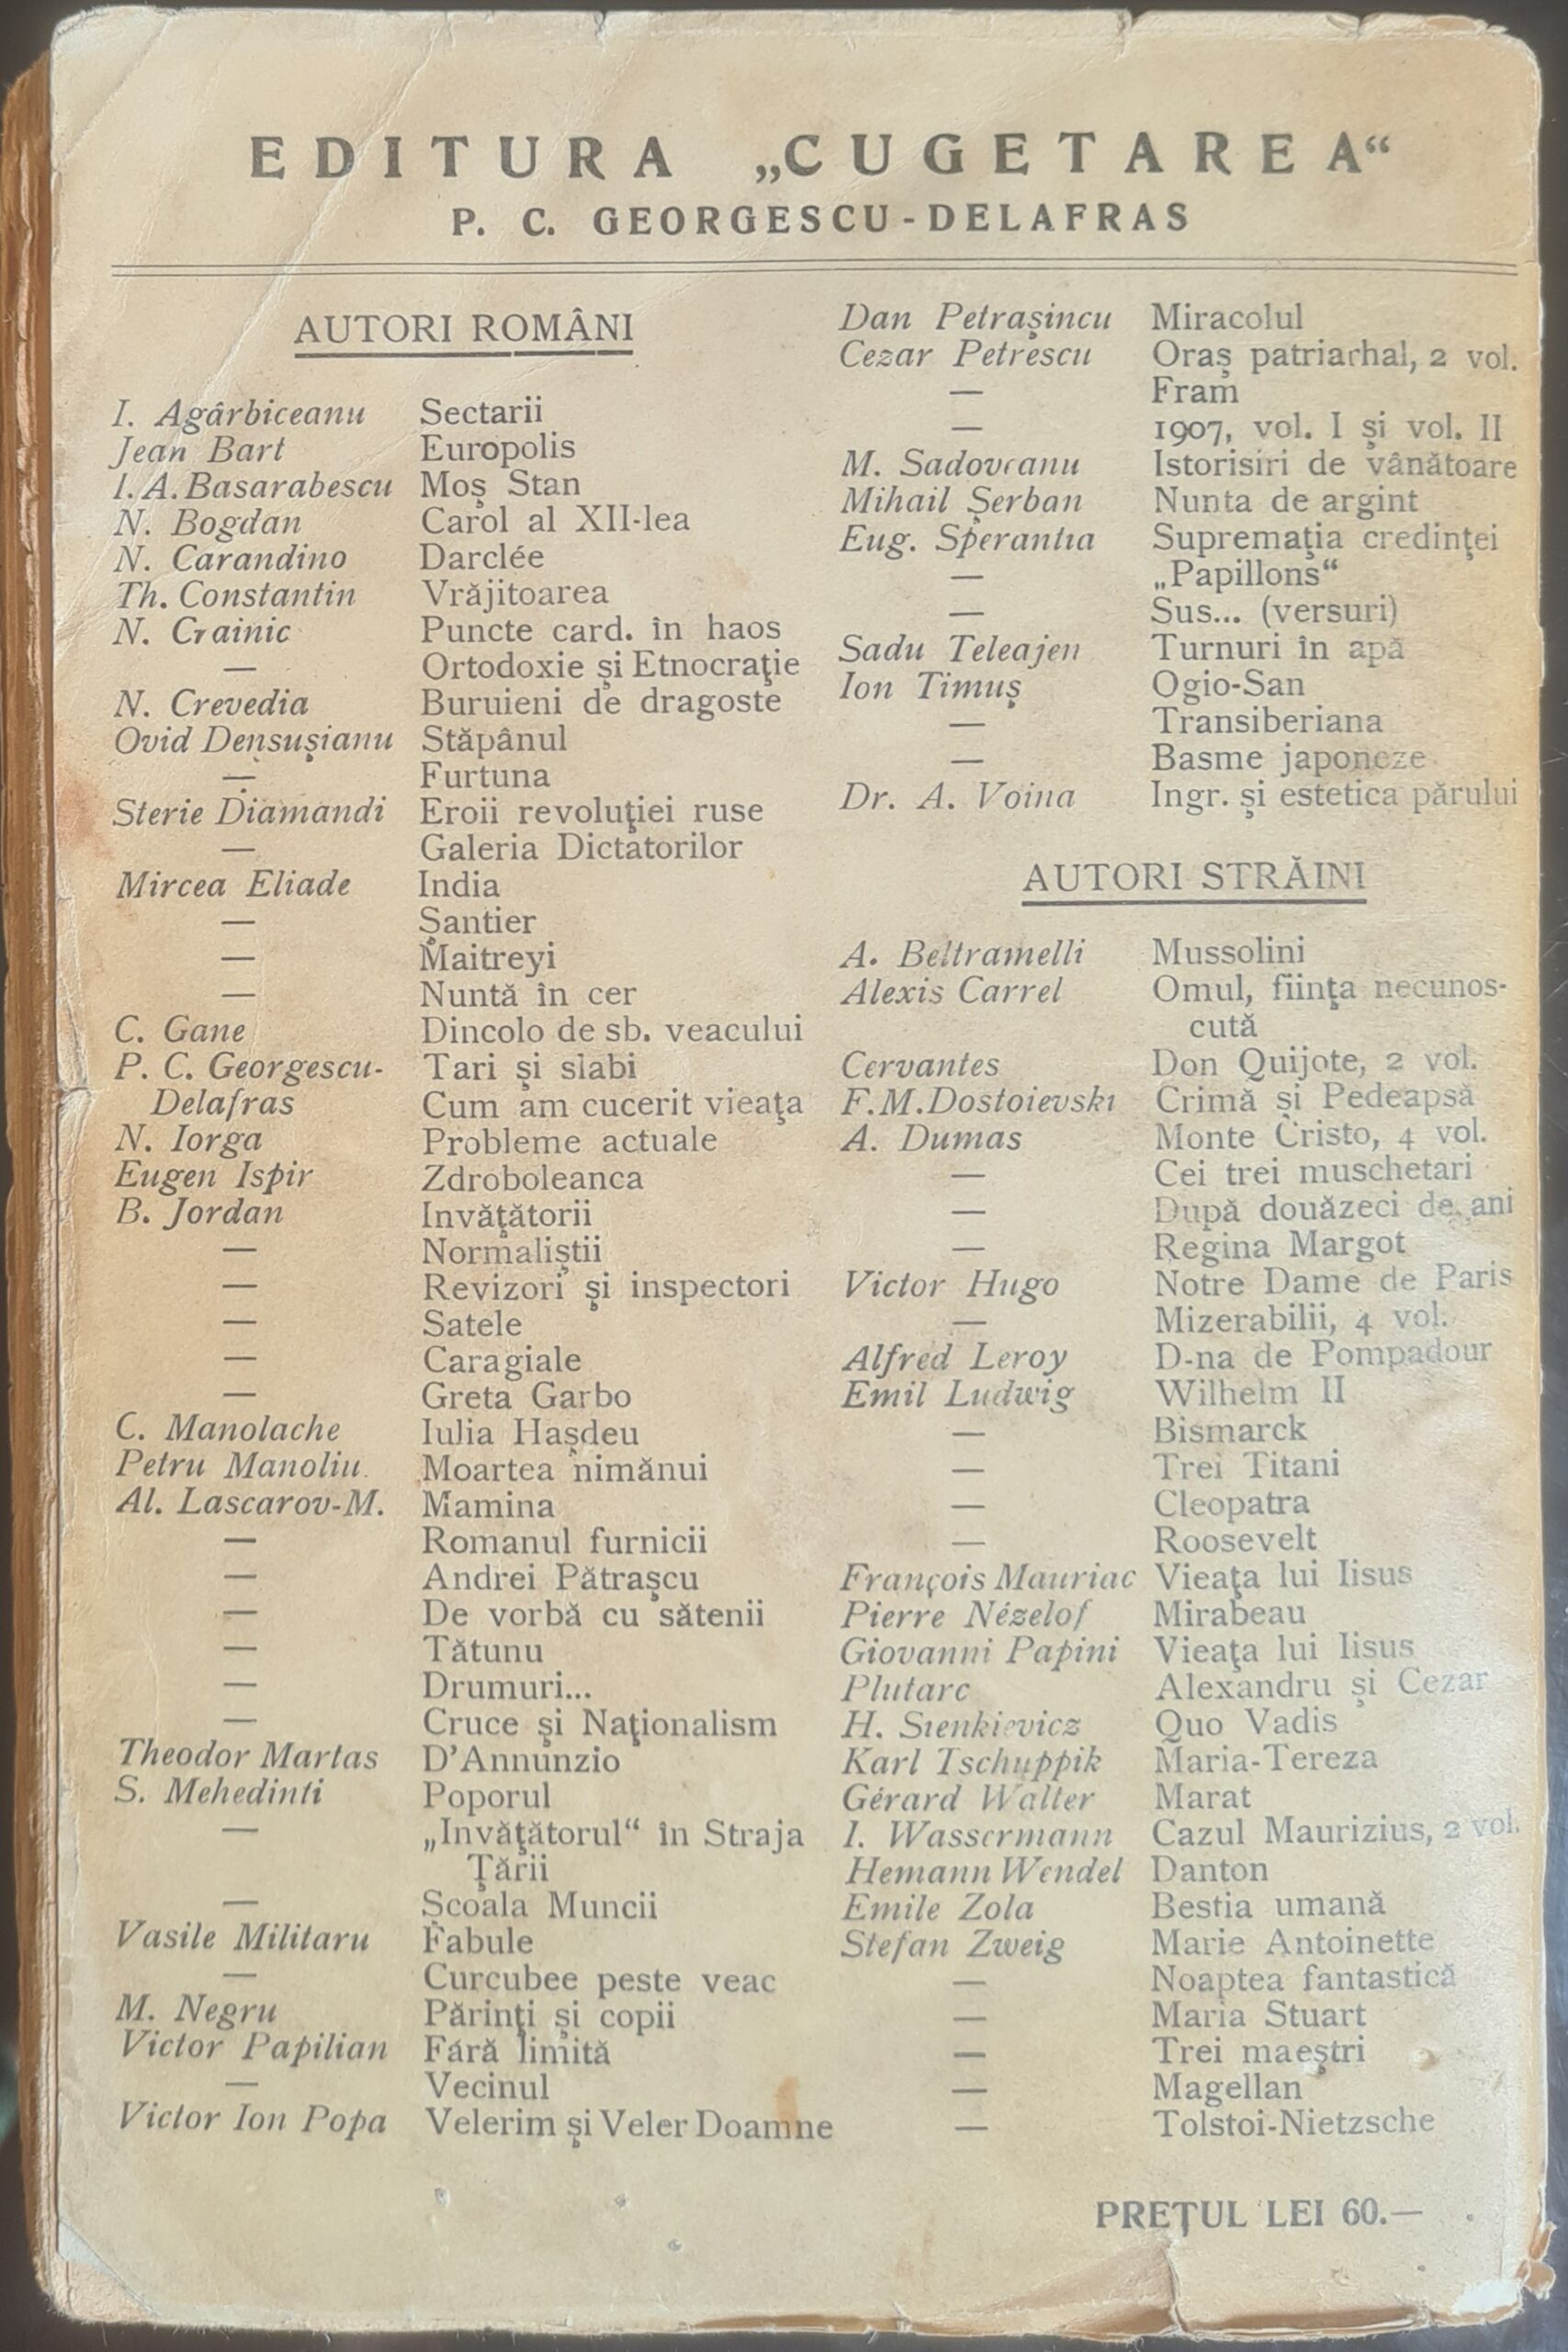 EDITURA „CUGETAREA“
P. C. GEORGESCU-DELAFRAS
AUTORI ROMÂNI
I. Agârbiceanu Sectarii
Jean Bart Europolis
I. A. Basarabescu Moş Stan
N. Bogdan Carol al XII-lea
N. Carandino Darclée
Th. Constantin Vrăjitoarea
N. Crainic Puncte card. în haos
— Ortodoxie şi Etnocraţie
N. Crevedia Buruieni de dragoste
Ovid Densuşianu Stăpânul
— Furtuna
Sterie Diamandi Eroii revoluţiei ruse
— Galeria Dictatorilor
Mircea Eliade India
— Şantier
— Maitreyi
— Nuntă în cer
C. Gane Dincolo de sb. veacului
P. C. Georgescu- Tari şi slabi
Delafras Cum am cucerit vieaţa
N. Iorga Probleme actuale
Eugen Ispir Zdroboleanca
B. Jordan Invăţătorii
— Normaliştii
— Revizori şi inspectori
— Satele
— Caragiale
— Greta Garbo
C. Manolache Iulia Haşdeu
Petru Manoliu Moartea nimănui
Al. Lascarov-M. Mamina
— Romanul furnicii
— Andrei Pătraşcu
— De vorbă cu sătenii
— Tătunu
— Drumuri...
— Cruce şi Naţionalism
Theodor Martas D'Annunzio
S. Mehedinti Poporul
— „Invăţătorul“ în Straja
Ţării
— Şcoala Muncii
Vasile Militaru Fabule
— Curcubee peste veac
M. Negru Părinţi şi copii
Victor Papilian Fără limită
— Vecinul
Victor Ion Popa Velerim şi Veler Doamne
Dan Petraşincu Miracolul
Cezar Petrescu Oraş patriarhal, 2 vol.
— Fram
— 1907, vol. I şi vol. II
M. Sadoveanu Istorisiri de vânătoare
Mihail Şerban Nunta de argint
Eug. Sperantia Supremaţia credinţei
— „Papillons“
— Sus... (versuri)
Sadu Teleajen Turnuri în apă
Ion Timuş Ogio-San
— Transiberiana
— Basme japoneze
Dr. A. Voina Ingr. şi estetica părului
AUTORI STRĂINI
A. Beltramelli Mussolini
Alexis Carrel Omul, fiinţa necunos-
cută
Cervantes Don Quijote, 2 vol.
F. M. Dostoievski Crimă şi Pedeapsă
A. Dumas Monte Cristo, 4 vol.
— Cei trei muschetari
— După douăzeci de ani
— Regina Margot
Victor Hugo Notre Dame de Paris
— Mizerabilii, 4 vol.
Alfred Leroy D-na de Pompadour
Emil Ludwig Wilhelm II
— Bismarck
— Trei Titani
— Cleopatra
— Roosevelt
François Mauriac Vieaţa lui Iisus
Pierre Nézelof Mirabeau
Giovanni Papini Vieaţa lui Iisus
Plutarc Alexandru şi Cezar
H. Sienkievicz Quo Vadis
Karl Tschuppik Maria-Tereza
Gérard Walter Marat
I. Wassermann Cazul Maurizius, 2 vol.
Hemann Wendel Danton
Emile Zola Bestia umană
Stefan Zweig Marie Antoinette
— Noaptea fantastică
— Maria Stuart
— Trei maeştri
— Magellan
— Tolstoi-Nietzsche
PREŢUL LEI 60.—